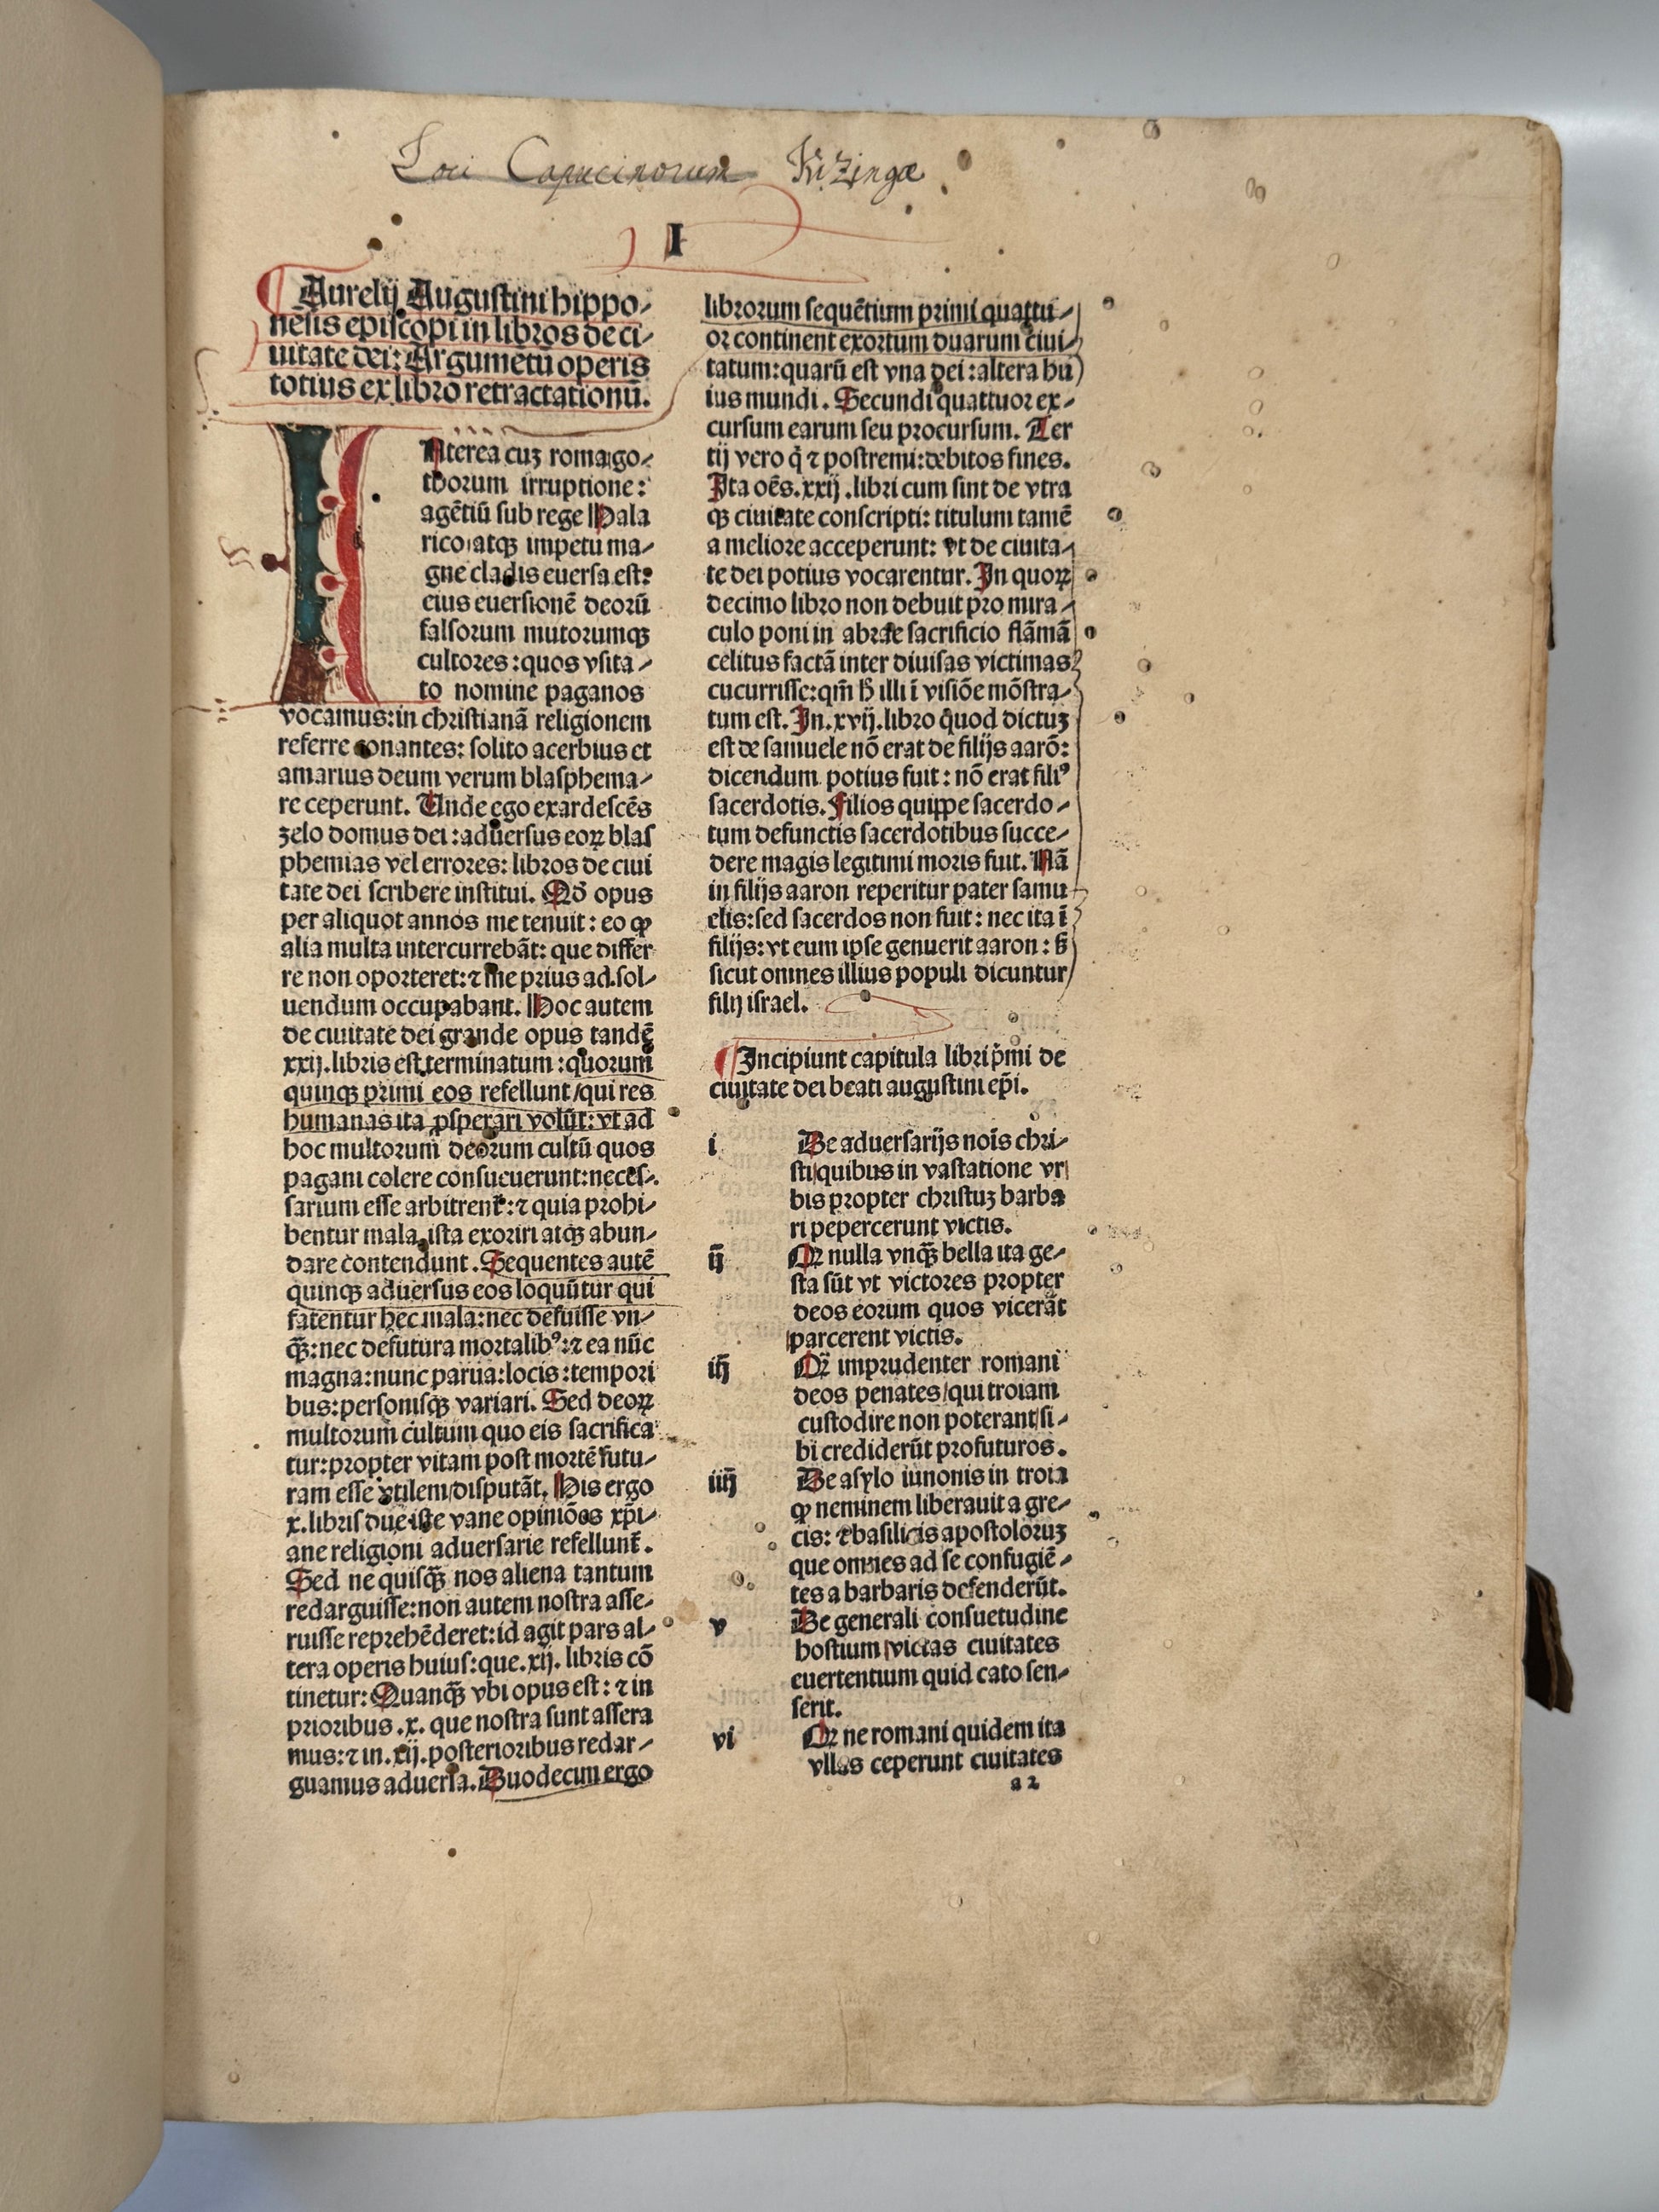 Loci Capucinorum Kizingæ
I
Aurelij Augustini hippo⸗
nēsis episcopi in libros de ci⸗
uitate dei: Argumētū operis
totius ex libro retractationū.
INterea cuʒ roma go⸗
thorum irruptione:
agētiū sub rege Hala
rico: atqʒ impetu ma⸗
gne cladis euersa est:
eius euersionē deorū
falsorum mutorumqʒ
cultores: quos vsita⸗
to nomine paganos
vocamus: in christianā religionem
referre conantes: solito acerbius et
amarius deum verum blasphema⸗
re ceperunt. Unde ego exardescēs
zelo domus dei: aduersus eoꝝ blas
phemias vel errores: libros de ciui
tate dei scribere institui. Qd̄ opus
per aliquot annos me tenuit: eo ꝙ
alia multa intercurrebāt: que differ
re non oporteret: ⁊ me prius ad sol⸗
uendum occupabant. Hoc autem
de ciuitate dei grande opus tandē
xxij. libris est terminatum: quorum
quinqʒ primi eos refellunt/qui res
humanas ita ꝓsperari volūt: vt ad
hoc multorum deorum cultū quos
pagani colere consueuerunt: neces⸗
sarium esse arbitrent᷑: ⁊ quia prohi⸗
bentur mala ista exoriri atqʒ abun⸗
dare contendunt. Sequentes autē
quinqʒ aduersus eos loquūtur qui
fatentur hec mala: nec defuisse vn⸗
qʒ̄: nec defutura mortalibꝰ: ⁊ ea nūc
magna: nunc parua: locis: tempori
bus: personisqʒ variari. Sed deoꝝ
multorum cultum quo eis sacrifica
tur: propter vitam post mortē futu⸗
ram esse vtilem/disputāt. His ergo
x. libris due iste vane opiniōes xp̄i⸗
ane religioni aduersarie refellunt᷑.
Sed ne quisqʒ̄ nos aliena tantum
redarguisse: non autem nostra asse⸗
ruisse reprehēderet: id agit pars al⸗
tera operis huius: que .xij. libris cō
tinetur: Quanqʒ̄ vbi opus est: ⁊ in
prioribus .x. que nostra sunt assera
mus: ⁊ in .xij. posterioribus redar⸗
guamus aduersa. Duodecim ergo
librorum sequētium primi quattu⸗
or continent exortum duarum ciui⸗
tatum: quarū est vna dei: altera hu
ius mundi. Secundi quattuor ex⸗
cursum earum seu procursum. Ter
tij vero q̇ ⁊ postremi: debitos fines.
Ita oēs .xxij. libri cum sint de vtra
qʒ ciuitate conscripti: titulum tamē
a meliore acceperunt: vt de ciuita⸗
te dei potius vocarentur. In quoꝝ
decimo libro non debuit pro mira⸗
culo poni in abrae sacrificio flāmā
celitus factā inter diuisas victimas
cucurrisse: qm̄ h̄ illi ī visiōe mōstra⸗
tum est. In .xvij. libro quod dictuʒ
est de samuele nō erat de filijs aarō:
dicendum potius fuit: nō erat filiꝰ
sacerdotis. Filios quippe sacerdo⸗
tum defunctis sacerdotibus succe⸗
dere magis legitimi moris fuit. Nā
in filijs aaron reperitur pater samu
elis: sed sacerdos non fuit: nec ita ī
filijs: vt eum ipse genuerit aaron: s̄
sicut omnes illius populi dicuntur
filij israel.
Incipiunt capitula libri p̄mi de
ciuitate dei beati augustini ep̄i.
i De aduersarijs nois̄ chri⸗
sti/quibus in vastatione vr
bis propter christuʒ barba
ri pepercerunt victis.
ij Qꝛ nulla vnqʒ̄ bella ita ge⸗
sta sūt vt victores propter
deos eorum quos vicerāt
parcerent victis.
iij Qꝛ imprudenter romani
deos penates/qui troiam
custodire non poterant/si⸗
bi crediderūt profuturos.
iiij De asylo iunonis in troia
ꝙ neminem liberauit a gre⸗
cis: ⁊ basilicis apostoloruʒ
que omnes ad se confugiē⸗
tes a barbaris defenderūt.
v De generali consuetudine
hostium/victas ciuitates
euertentium quid cato sen⸗
serit.
vi Qꝛ ne romani quidem ita
vllas ceperunt ciuitates
a 2